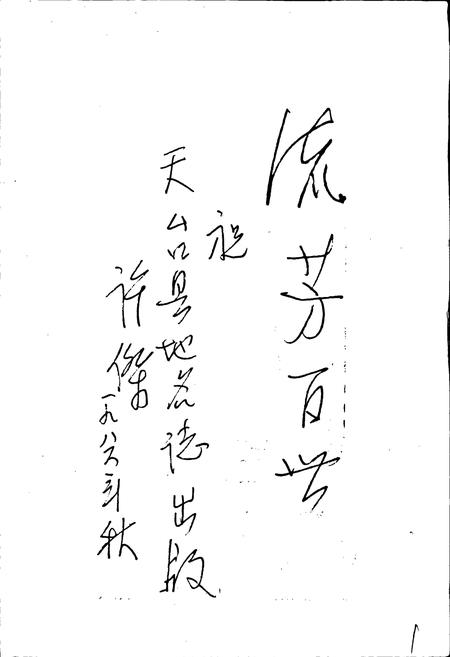 流芳百世
祝
天台县地名誌出版
许傑
一九八六年秋